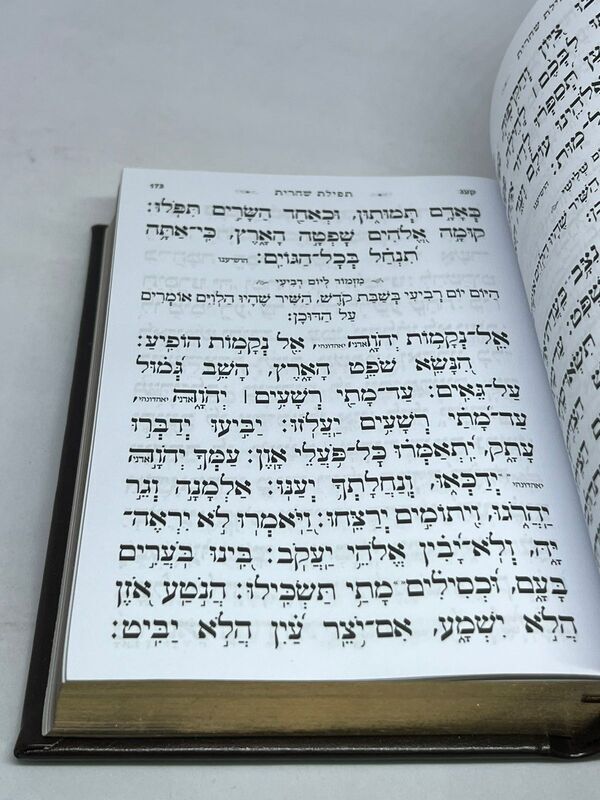 קעג תפילת שחרית 173
כְּאָדָם תְּמוּתוּן, וּכְאַחַד הַשָּׂרִים תִּפֹּלוּ:
קוּמָה אֱלֹהִים שָׁפְטָה הָאָרֶץ, כִּי־אַתָּה
תִנְחַל בְּכָל־הַגּוֹיִם: הושיענו
מִזְמוֹר לְיוֹם רְבִיעִי
הַיּוֹם יוֹם רְבִיעִי בְּשַׁבַּת קֹדֶשׁ, הַשִּׁיר שֶׁהָיוּ הַלְוִיִּם אוֹמְרִים
עַל הַדּוּכָן:
אֵל־נְקָמוֹת יְהֹוָה אדני יאהדונהי, אֵל נְקָמוֹת הוֹפִיעַ:
הִנָּשֵׂא שֹׁפֵט הָאָרֶץ, הָשֵׁב גְּמוּל
עַל־גֵּאִים: עַד־מָתַי רְשָׁעִים | יְהֹוָה אדני יאהדונהי,
עַד־מָתַי רְשָׁעִים יַעֲלֹזוּ: יַבִּיעוּ יְדַבְּרוּ
עָתָק, יִתְאַמְּרוּ כָּל־פֹּעֲלֵי אָוֶן: עַמְּךָ יְהֹוָה אדני
יאהדונהי יְדַכְּאוּ, וְנַחֲלָתְךָ יְעַנּוּ: אַלְמָנָה וְגֵר
יַהֲרֹגוּ, וִיתוֹמִים יְרַצֵּחוּ: וַיֹּאמְרוּ לֹא יִרְאֶה־
יָּהּ, וְלֹא־יָבִין אֱלֹהֵי יַעֲקֹב: בִּינוּ בֹּעֲרִים
בָּעָם, וּכְסִילִים מָתַי תַּשְׂכִּילוּ: הֲנֹטַע אֹזֶן
הֲלֹא יִשְׁמָע, אִם־יֹצֵר עַיִן הֲלֹא יַבִּיט: